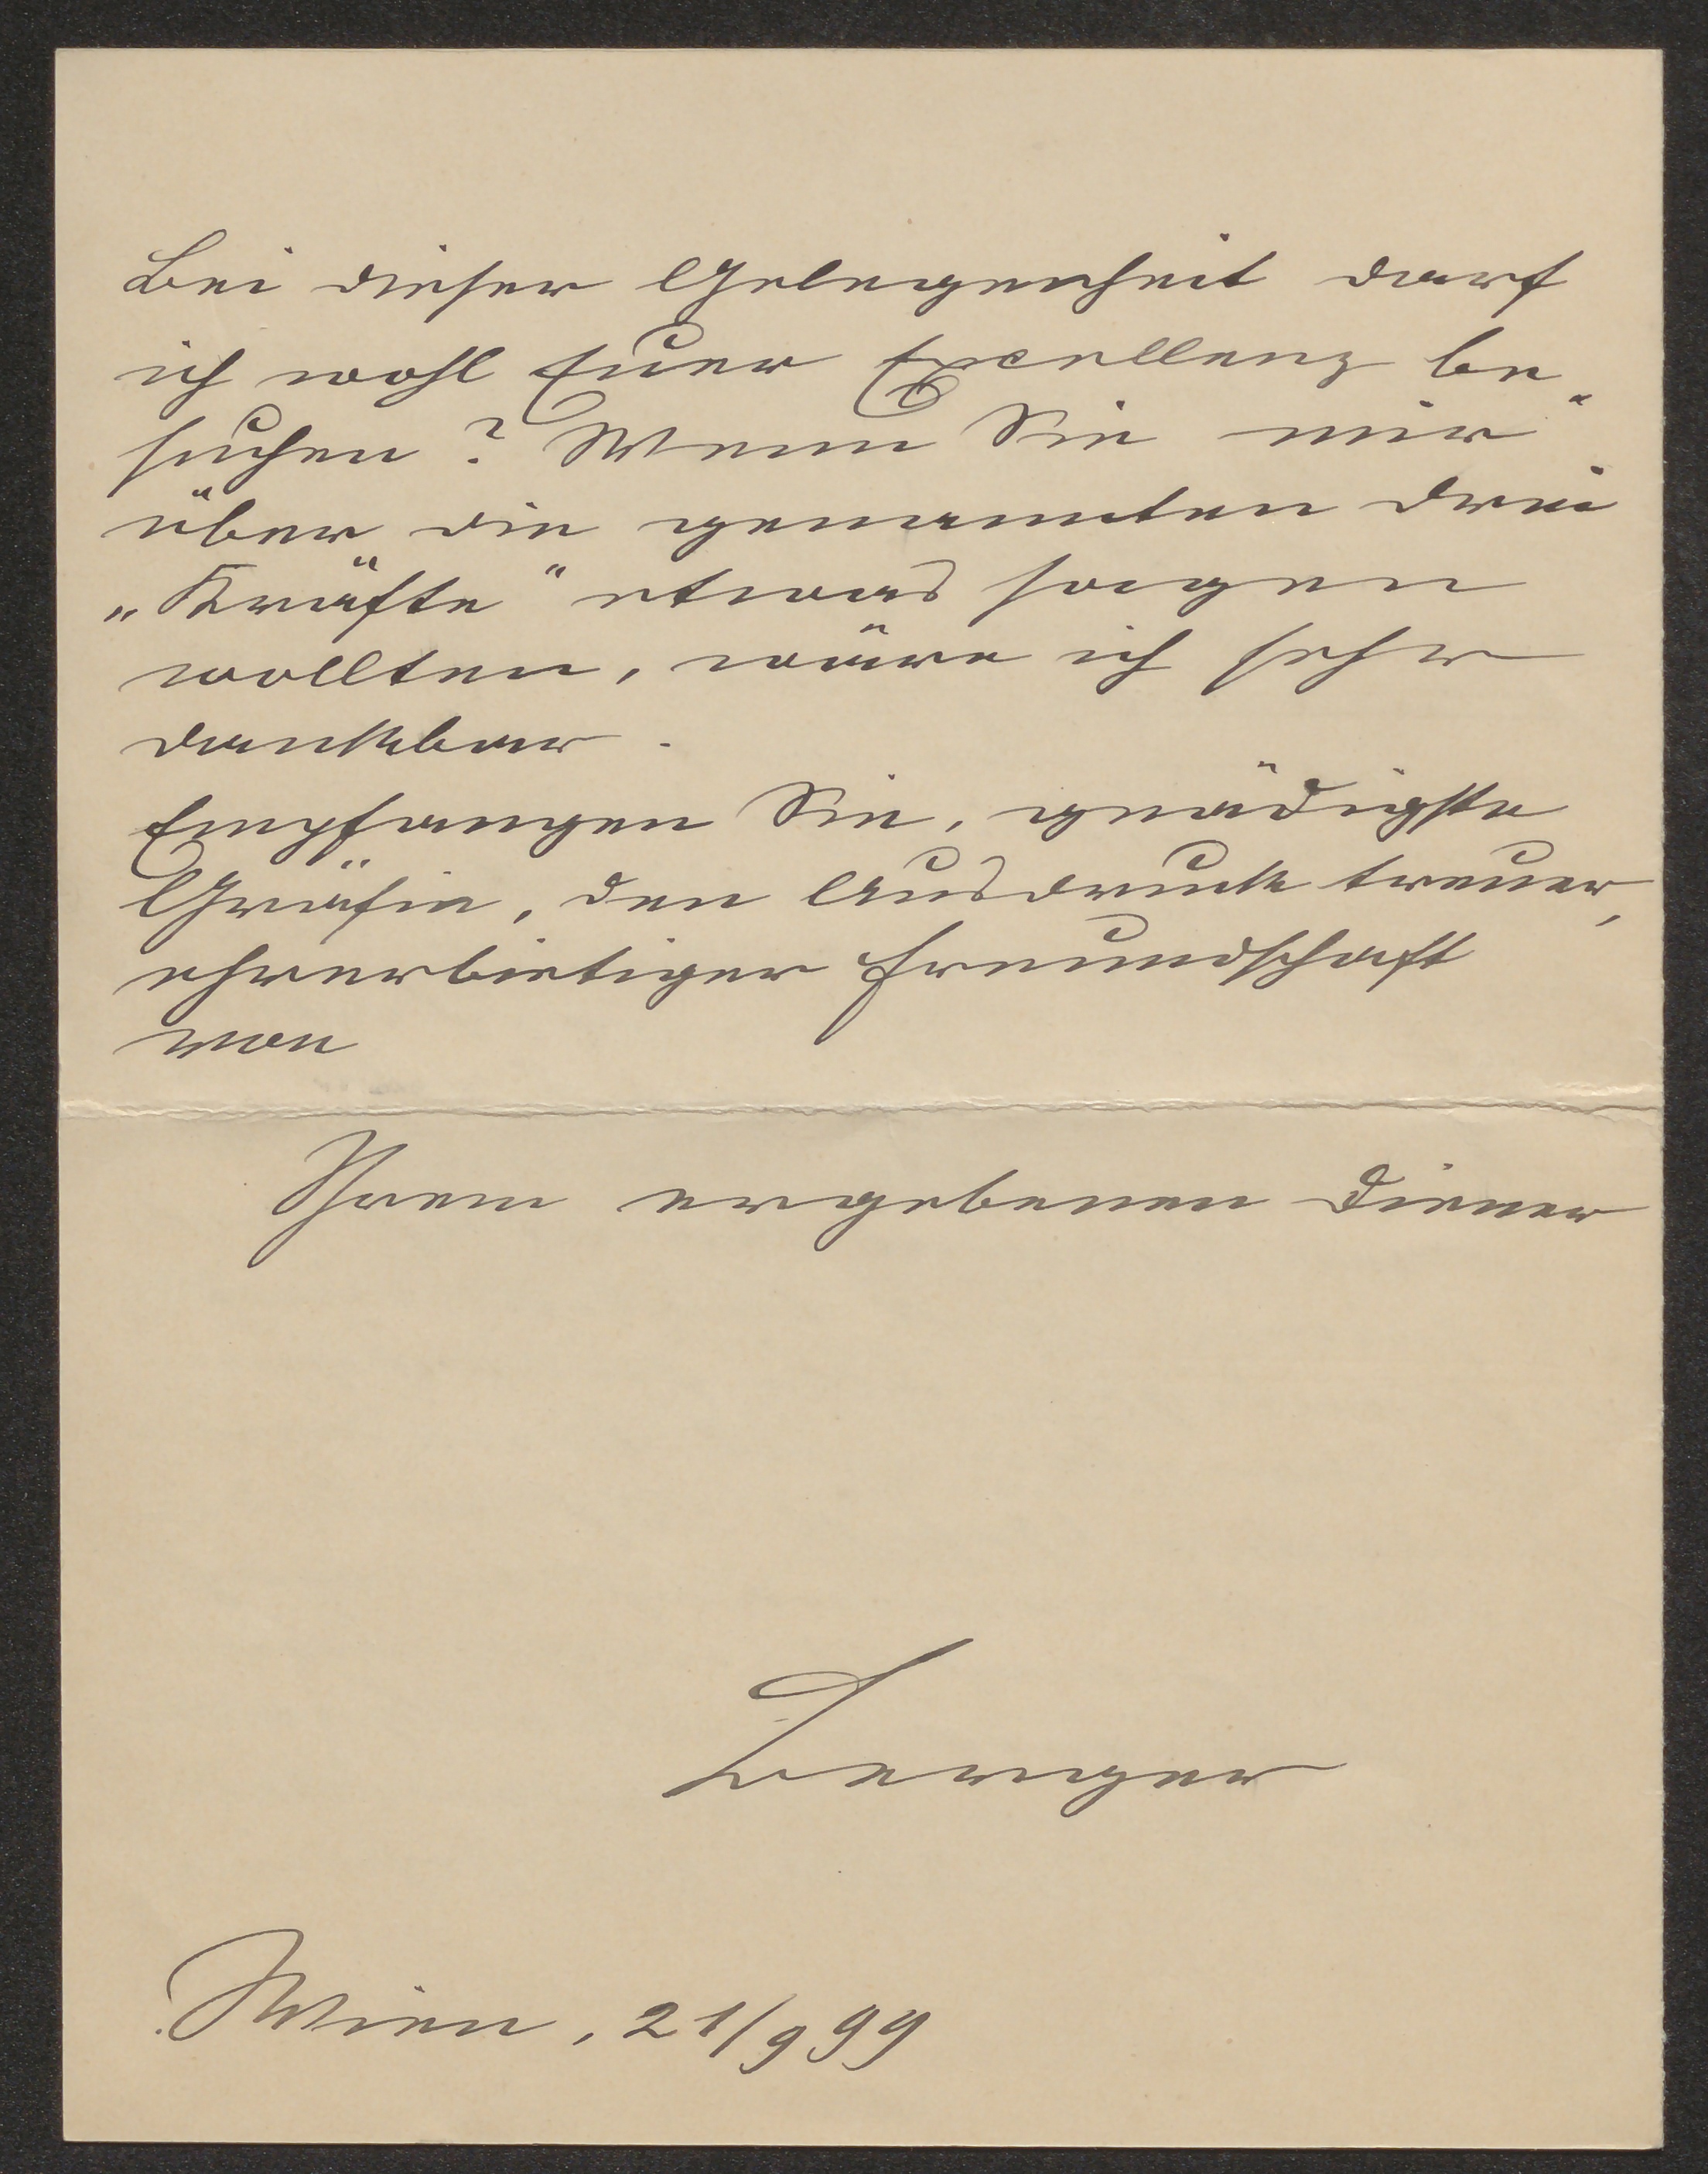 Bei dieser Gelegenheit darf
ich wohl Euer Excellenz be-
suchen? Wenn Sie mir
über die genannten drei
„Kräfte“ etwas sagen
wollten, wäre ich sehr
dankbar.
Empfangen Sie, gnädigste
Gräfin, den Ausdruck treuer,
ehrerbietiger Freundschaft
von
Ihrem ergebenen Diener
Wien, 21/9 99